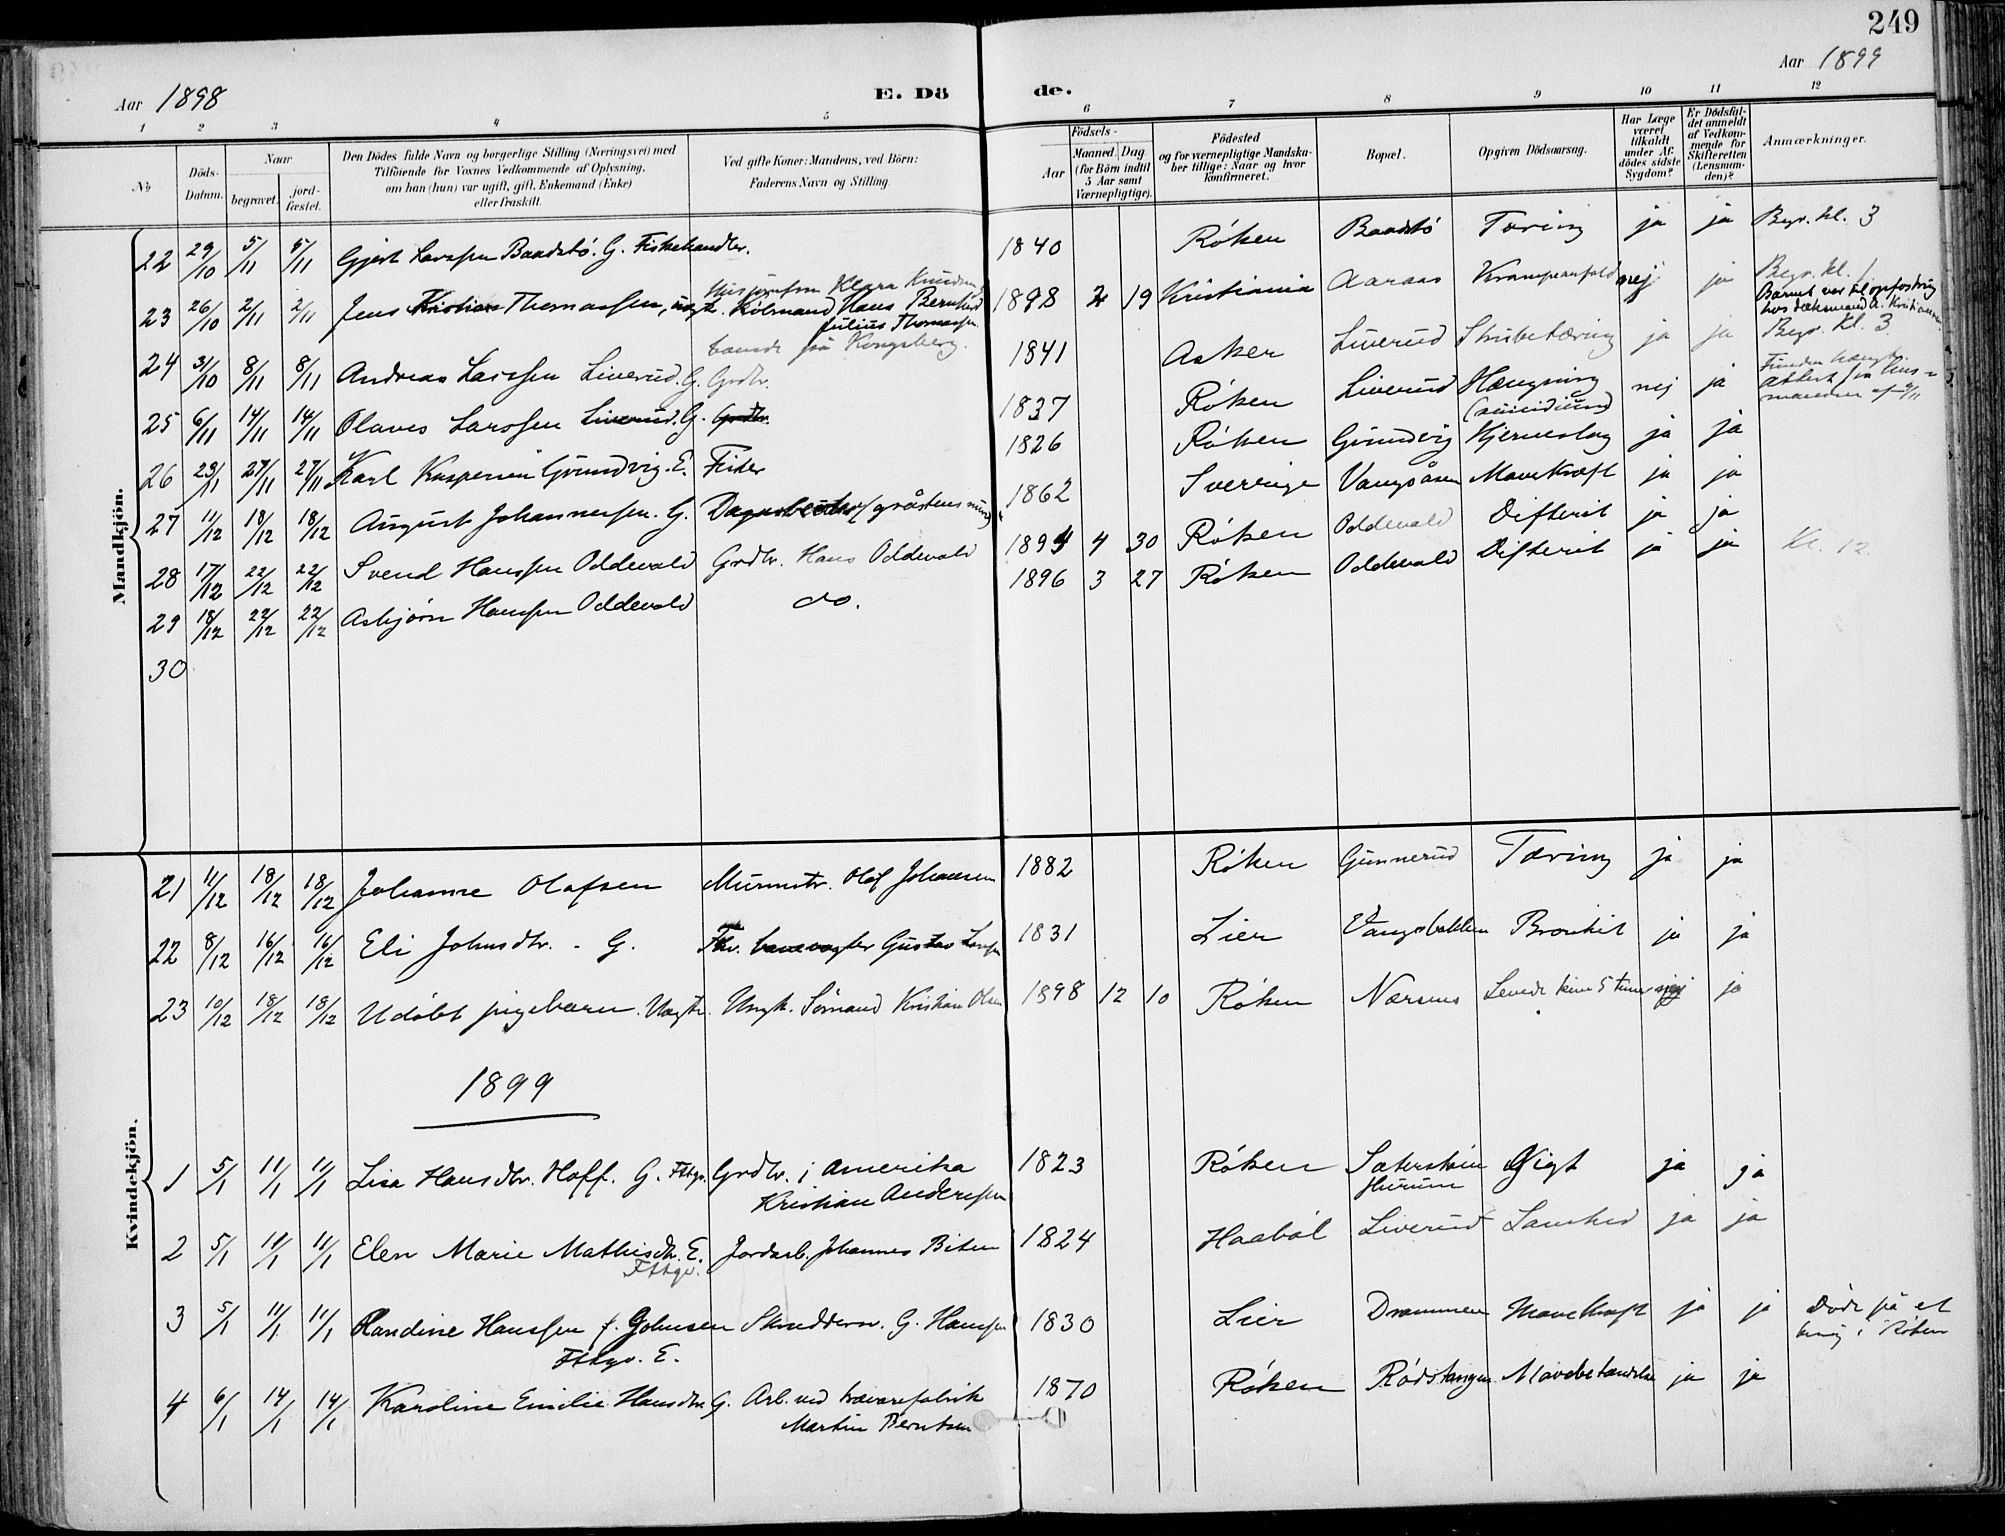 249
Aar 1898
E. Dö
de.
Aar 1899
1 2 3 4 5 6 7 8 9 10 11 12
No
Döds-
Datum.
Naar
begravet.
jord-
fæstet.
Den Dödes fulde Navn og borgerlige Stilling (Næringsvei) med
Tilföiende for Voxnes Vedkommende af Oplysning,
om han (hun) var ugift, gift, Enkemand (Enke)
eller fraskilt.
Ved gifte Koner: Mandens, ved Börn:
Faderens Navn og Stilling.
Födsels-
Aar
Maaned. Dag.
(for Börn indtil
5 Aar samt
Værnepligtige).
Födested
og for værnepligtige Mandska-
ber tillige: Naar og hvor
konfirmeret.
Bopæl.
Opgiven Dödsaarsag.
Har Læge
været
tilkaldt
under Af-
dödes sidste
Sygdom?
Er Dödsfal-
det anmeldt
af Vedkom-
mende for
Skifteretten
(Lensman-
den)?
Anmærkninger.
Mandkjön.
22 29/10 5/11 5/11 Gjert Larssen Baadstø. G. Fiskehandler. 1840 Røken Baadstø Tæring ja ja Begr. kl. 3
23 26/10 2/11 2/11 Jens Kristian Thomassen, uægte. Kølmand Hans Bernhard 1898 2 19 Kristiania Aaraas Krampeanfald nej ja Begr. kl. 1
Julius Thomassen
boende på Kongsberg.
Barnet var til opfostring
24 31/10 8/11 8/11 Andreas Larssen Liverud. G. Grdbr. 1841 Asker Liverud Strubetæring ja ja Begr. kl. 3
25 6/11 14/11 14/11 Olaves Larssen Liverud. G. Grdbr. 1837 Røken Liverud Hængning nej ja Funden hængt.
(suicidium)
26 23/11 27/11 27/11 Karl Kaspersen Grundvig. E. Fisker 1826 Røken Grundvig Hjerneslag ja ja
27 11/12 18/12 18/12 August Johannessen. G. 1862 Sverige Vangsåsen Mavekræft ja ja
28 17/12 22/12 22/12 Svend Hanssen Oddevald Grdbr. Hans Oddevald 1894 4 30 Røken Oddevald Difterit ja ja
29 18/12 22/12 22/12 Asbjørn Hanssen Oddevald do. 1896 3 27 Røken Oddevald Difterit ja ja Kl. 12.
30
Kvindekjön.
21 11/12 18/12 18/12 Johanne Olafsen Murmstr. Olaf Johansen 1882 Røken Gunnerud Tæring ja ja
22 8/12 16/12 16/12 Eli Johnsdtr. - G. Fhv. banevogter Gustav Larssen 1831 Lier Vangsbakken Bronkit ja ja
23 10/12 18/12 18/12 Udøbt pigebarn. Uægte. Ungk. Sømand Kristian Olsen 1898 12 10 Røken Nærsnes Levede kun 5 timer nej ja
1899
1 5/1 11/1 11/1 Lisa Hansdtr. Hoff. G. Fttgv. Grdbr. i Amerika 1823 Røken Sæterstøen Gigt ja ja
Kristian Anderssen
Hurum
2 5/1 11/1 11/1 Elen Marie Mathisdtr. E. Jordarb. Johannes Biten 1824 Haabøl Liverud Lamhed ja ja
Fttgv.
3 5/1 11/1 11/1 Olandine Hanssen f. Johnsen Skrædderm. G. Hanssen 1830 Lier Drammen Mavekræft ja ja Døde på et
Fttgv. E.
besøg i Røken
4 6/1 14/1 14/1 Karoline Emilie Hansdtr. G. Arb. ved trævarefabrik 1870 Røken Rødstangen Mavebetændelse ja ja
Martin Berntsen